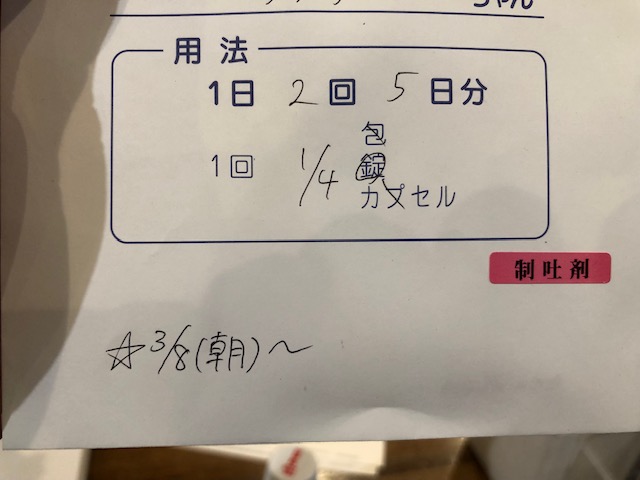 ちゃん
用法
1日 2回 5日分
包
1回 1/4 錠
カプセル
制吐剤
☆3/8(朝)～